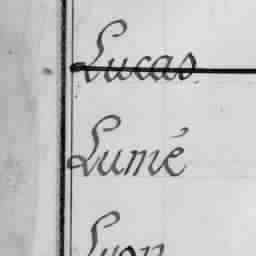 Lucas
Lumé
Lyon